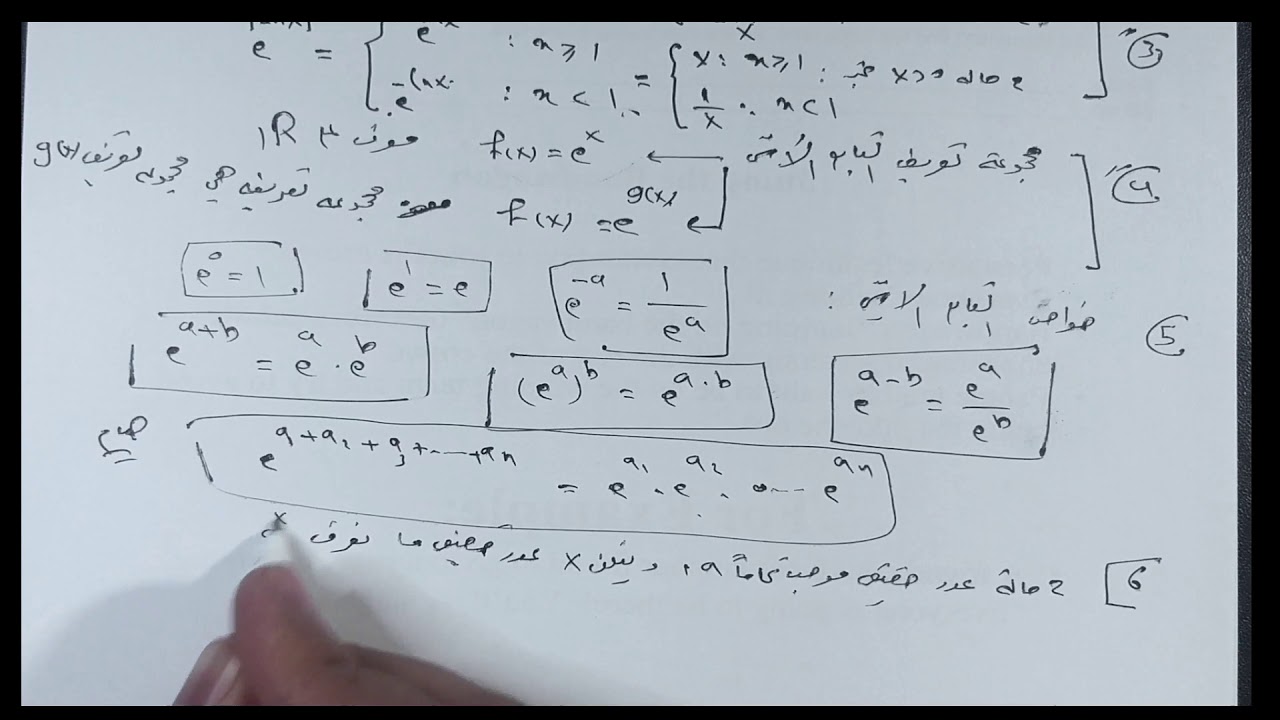 ③ e = { e : x ≥ 1 = { x : x ≥ 1
e^{-ln x} : x < 1 { 1/x : x < 1
④ مجموعة تعريف التابع الأسي ← f(x) = e^x هي IR
f(x) = e^{g(x)} مجموعة تعريفه هي مجموعة تعريف g(x)
⑤ خواص التابع الأسي :
e^{-a} = 1/e^a e^1 = e e^0 = 1
e^{a-b} = e^a/e^b (e^a)^b = e^{a.b} e^{a+b} = e^a . e^b
e^{a+a_2+a_3+....+a_n} = e^{a_1} . e^{a_2} . .... e^{a_n}
6 حالة عدد حقيقي موجب تماماً a، وليكن x عدد حقيقي ما نعرف